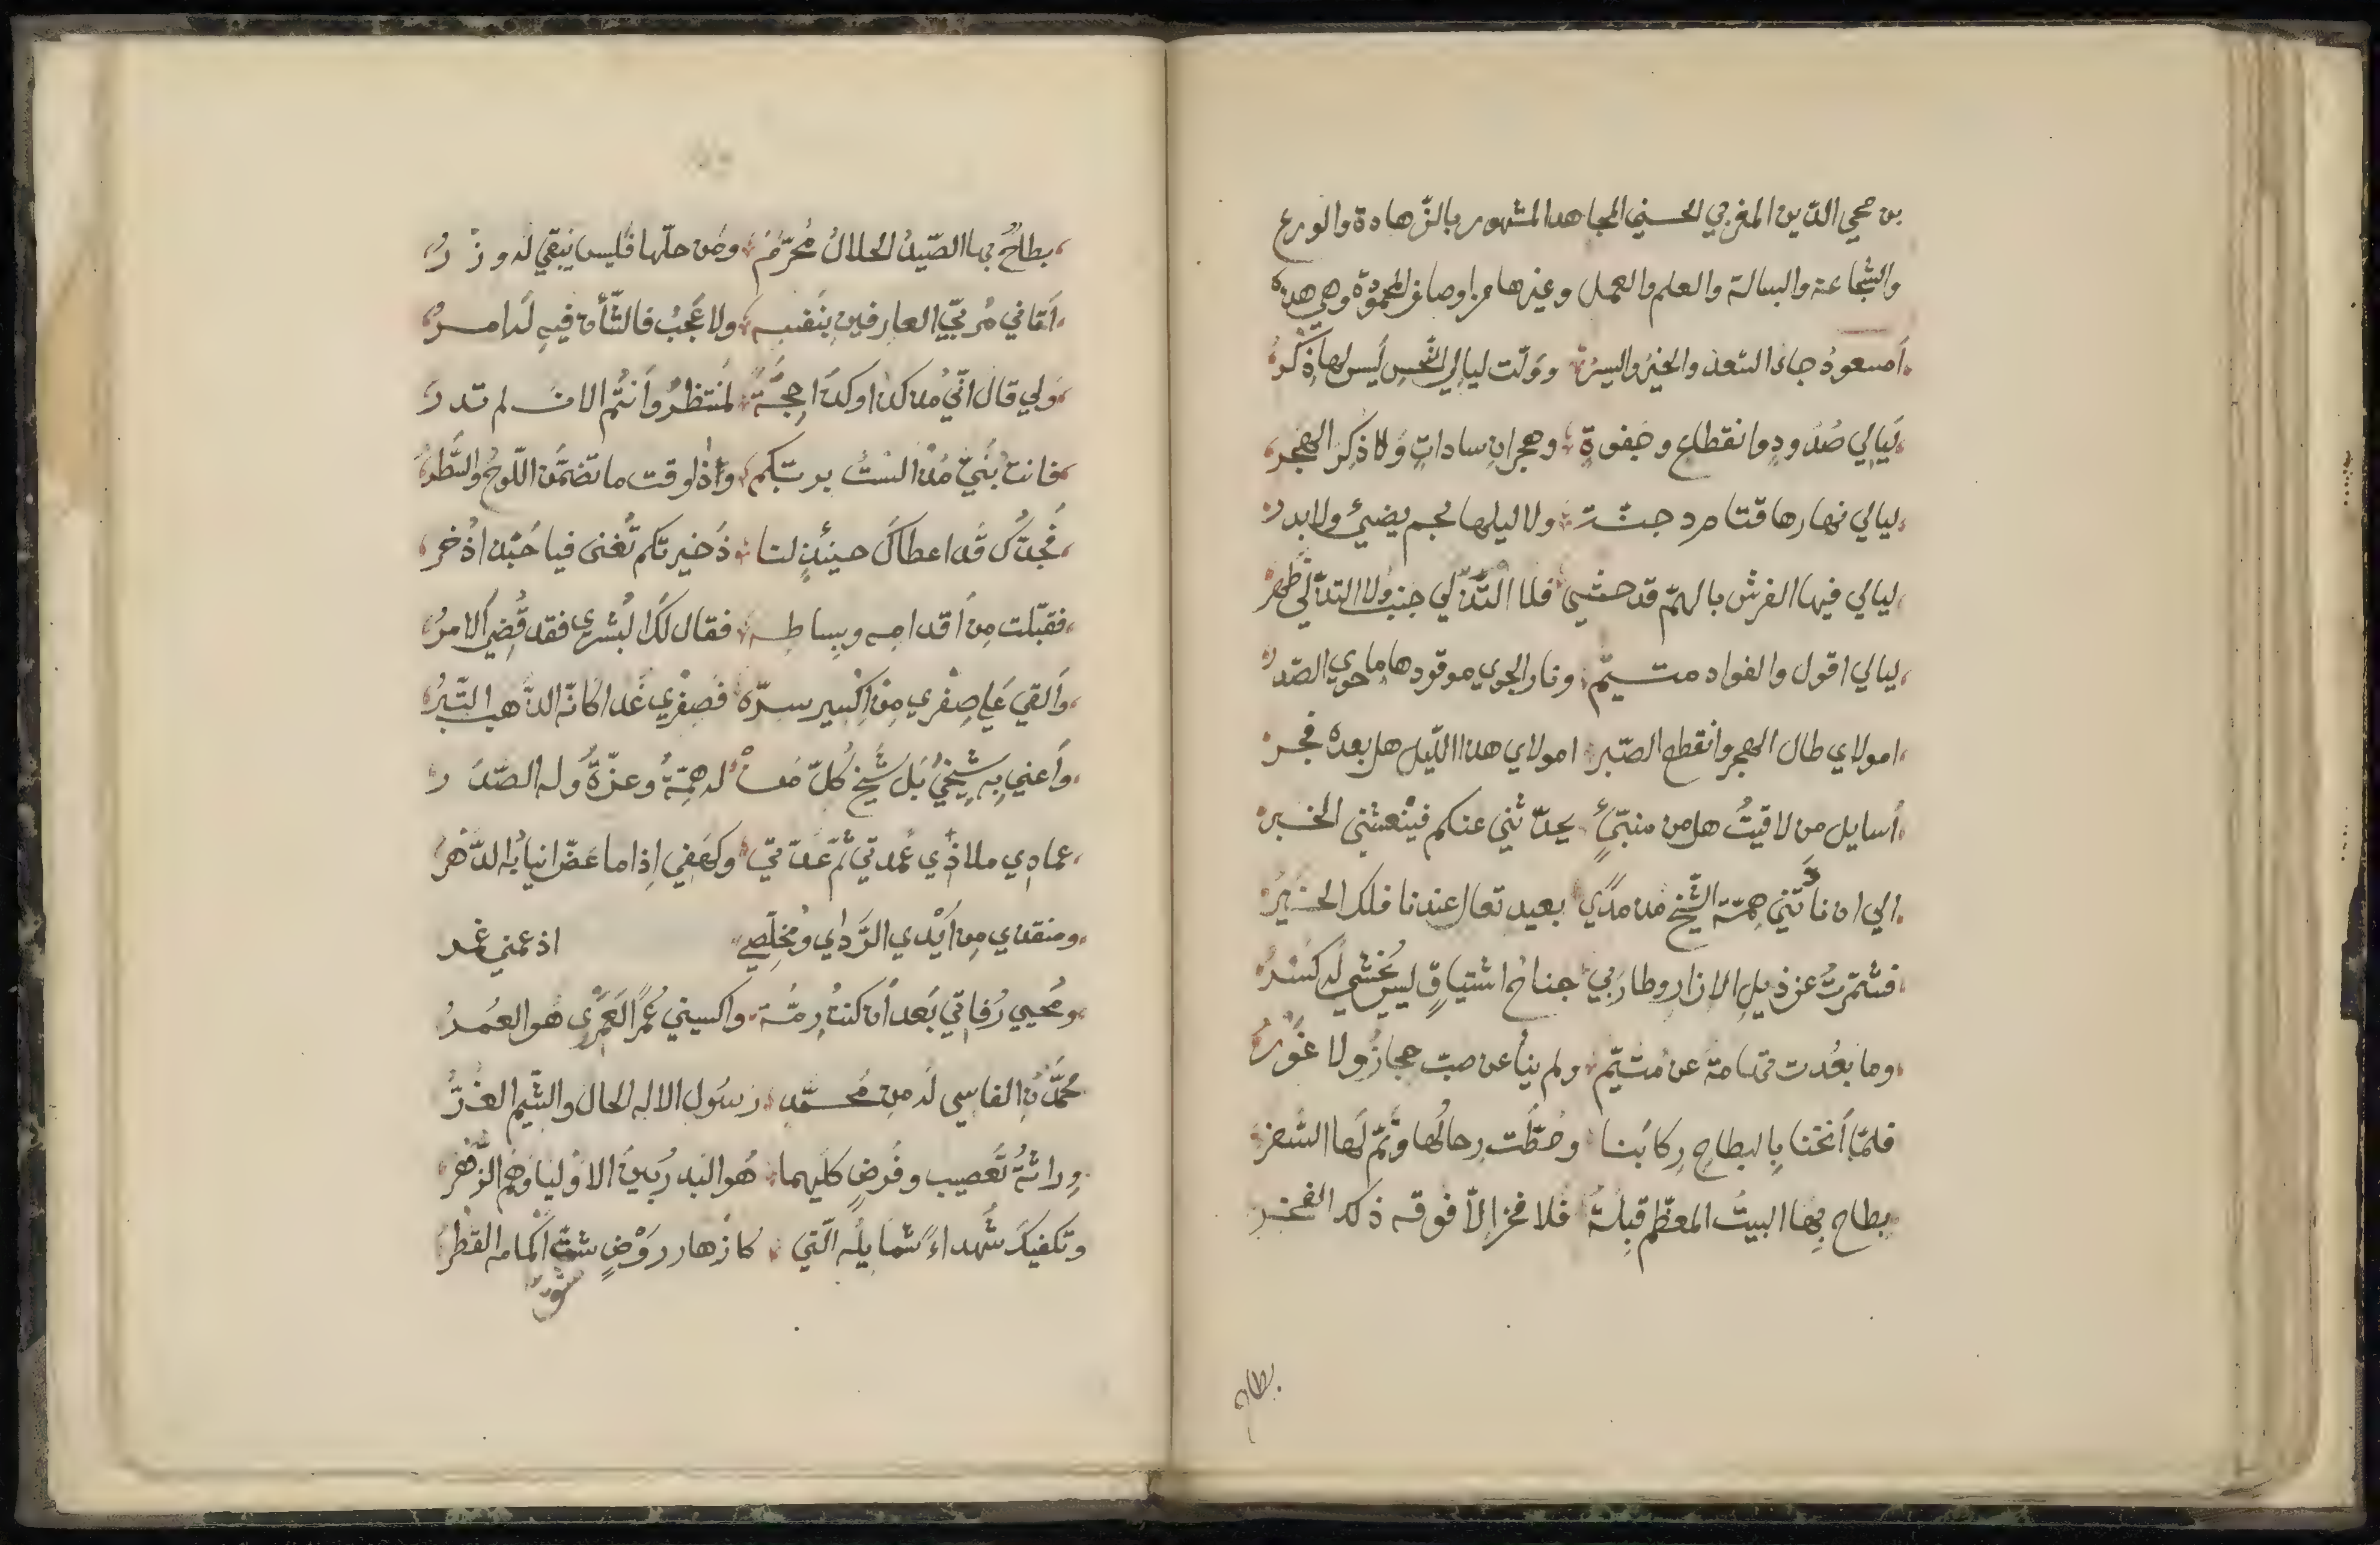 بن محي الدّين المغربي الحسني المجاهد المشهور بالزّهادة والورع
والشّجاعة والبسالة والعلم والعمل وغيرها من اوصافه المحمودة وهي هذه
أمسعودُ جاء السّعد والخيرُ واليسرُ وولّت ليالي النّحسِ ليس لها ذِكْرُ
ليالي صُدودٍ وانقطاع وجفوةٍ وهجرانِ ساداتٍ ولا ذكِرَ الهجر
ليالي نهارها قتام دجنّة ولا ليلها نجم يضيئ ولا بدر
ليالي فيها الفرش بالهمّ قد حشي فلا التذّ لي جنب ولا التذّ لي ظهر
ليالي اقول والفواد متيّم ونار الجوي موقودها ما حوي الصّدر
امولاي طال الهجر وانقطع الصّبر امولاي هذا اللّيل هل بعده فجر
أسايل من لاقيتُ هل من منبّئٍ يحدّثني عنكم فينعشني الخبر
الي ان نادَتْني همّة الشّيخ من مدًي بعيد تعال عندنا فلك الخيرُ
فشمّرتُ عن ذيلِ الازار وطار بي جناحُ اشتياقٍ ليس يخشي له كسرُ
وما بعُدت تهامة عن متيّم ولم ينأ عن صب حجازُ ولا غَوْرُ
فلمّا أنخنا بِالبطاحِ رِكابَنا وحُطَّت رِحالُها وتمّ لها السّفر
بطاح بِها البيتُ المعظّم قبلةُ فلا فخر إلاّ فوقه ذلك الفخر
بطاح
بطاحُ بها الصّيدُ الحلالُ مُحرّمُ ومَن حلّها فليس يبقي له وزرُ
أتاني مُربّي العارفين بِنفسِه ولا عَجبُ فالشّأن فيهِ له امرُ
ولي قال انّي منذ كذا وكذا حِجَّةً لمنتظرُ وأنتُم الان لم تدر
فانت بُنيّ مُذْ الستُ بربّكم وإذ لوقت ما تضمّن اللّوحُ والسّطرُ
فجدُّك قد اعطاكَ حينئذٍ لنا ذَخيرتكم تُغنى فيا حبّذا ذُخر
فقبّلت مِن أقدامِه وبِساطِه فقال لكَ البُشري فقد قُضِيَ الامرُ
وألقي عَلي صِفري مِن اِكسير سرّه فصِفرِي غَدا كانّه الذّهب التّبرُ
وأعني بِه شيخيُ بَل شيخ كُلّ مَن له هِمّةُ وعزّةُ وله الصّدر
عمادِي ملاذُي عُمدتي ثُمّ عَدّتي وكهَفِي اِذا ما عَضّ انيابُه الدّهرُ
ومنقذي مِن أيْدي الرَّداي ومُخلِّصي اذ عمني غمر
ومُحيي رُفاتي بَعد أن كنتُ رِمّة واكسبني عُمْراً لَعَمْرِى هُو العُمرُ
محمَّدُنِ الفاسي له مِن مُحمّد رسُولِ الاله الحال والشّيَم الغُرُّ
ورِاثةُ تَعصيب وفَرضٍ كليهما هُو البَدرُ بينَ الاوْليا وَهُم الزّهرُ
وتكفيكَ شُهداءً شمايلُه الّتي كازهار روْضٍ شقّ اكمامه القطرُ